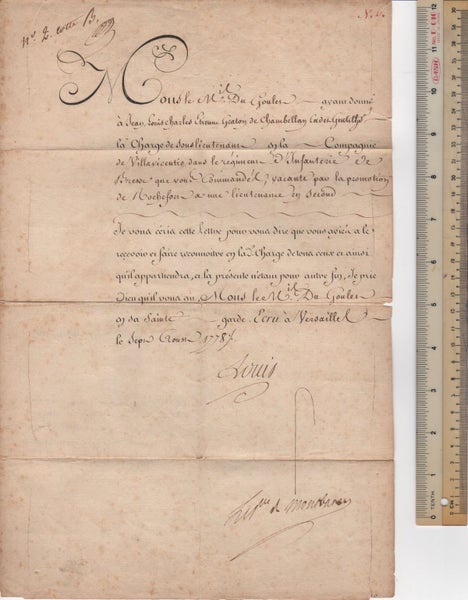 N.º 2. cotte B.
N. 4.
Mons le M.is Du Goulet ayant donné
à Jean Louis Charles Etienne Geaton de Chambellan Cadet Gentilhe
la Charge de Souslieutenant en la Compagnie
de Villavicentie, dans le régiment d'Infanterie de
Bresse que vous commandez, vacante par la promotion
de Rochefon a une lieutenance en second
Je vous écris cette lettre pour vous dire que vous ayiez a le
recevoir et faire reconnoitre en lad. Charge de tous ceux et ainsi
qu'il appartiendra, et la présente n'étant pour autre fin, Je prie
Dieu qu'il vous ait Mons le M.is Du Goulet
en sa Sainte garde. Ecrit à Versailles
le Sept Aoust 1778.
Louis
Le P.ce de Montbarey